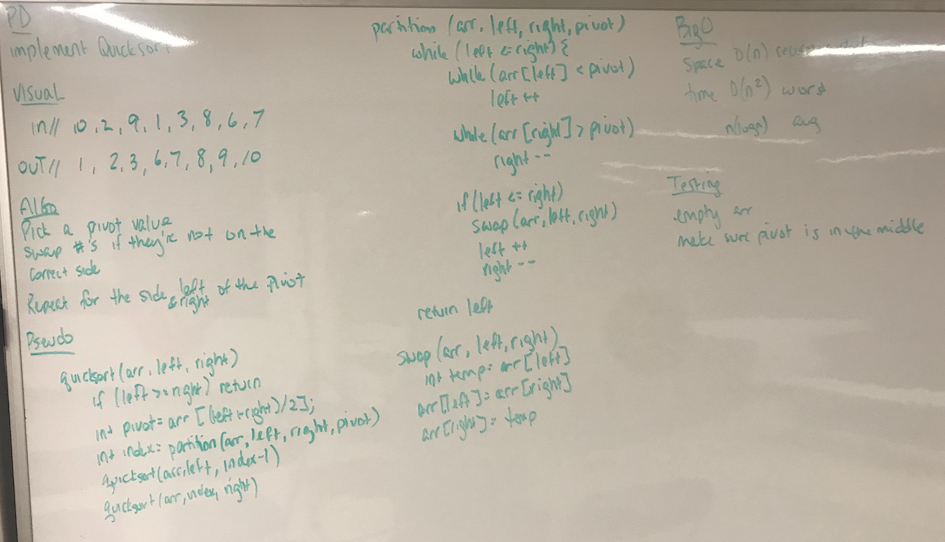 PD
implement Quicksort
Visual
in// 10, 2, 9, 1, 3, 8, 6, 7
OUT// 1, 2, 3, 6, 7, 8, 9, 10
Algo
Pick a pivot value
swap #'s if they're not on the
correct side
Repeat for the side left & right of the pivot
Pseudo
quicksort(arr, left, right)
if (left >= right) return
int pivot = arr[(left+right)/2];
int index = partition(arr, left, right, pivot)
quicksort(arr, left, index-1)
quicksort(arr, index, right)
partition (arr, left, right, pivot)
while (left <= right) {
while (arr[left] < pivot)
left ++
while (arr[right] > pivot)
right --
if (left <= right)
swap (arr, left, right)
left ++
right --
return left
swap (arr, left, right)
int temp = arr[left]
arr[left] = arr[right]
arr[right] = temp
BigO
Space O(n)
time O(n²) worst
n(logn) avg
Testing
empty arr
make sure pivot is in the middle